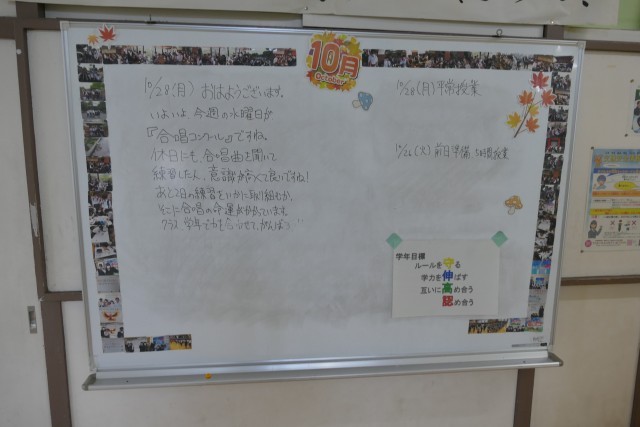 10月
October
10/28(月) おはようございます。
いよいよ、今週の水曜日が
『合唱コンクール』ですね。
休日にも、合唱曲を聞いて
練習したり、意識が高くて良いですね!
あと2日の練習をいかに取り組むか、
そこに合唱の命運がかかっています。
クラス、学年で力を合わせて、がんばろう!!
10/28(月) 平常授業
(火) 前日準備、5時間授業
学年目標
ルールを守る
学力を伸ばす
互いに高め合う
認め合う